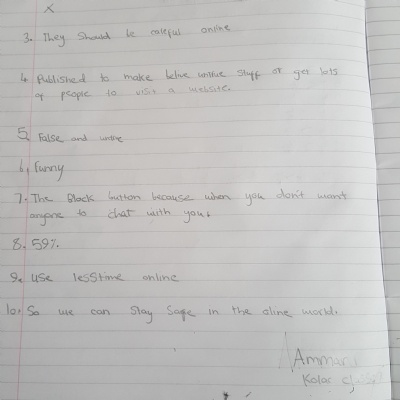 x
3. They should be careful online
4. Published to make belive untrue stuff or get lots
of people to visit a website.
5. False and untrue
6, funny
7. The Black button because when you don't want
anyone to chat with you.
8. 59%.
9. use less time online
10. So we can stay safe in the oline world.
Ammar
Kolar